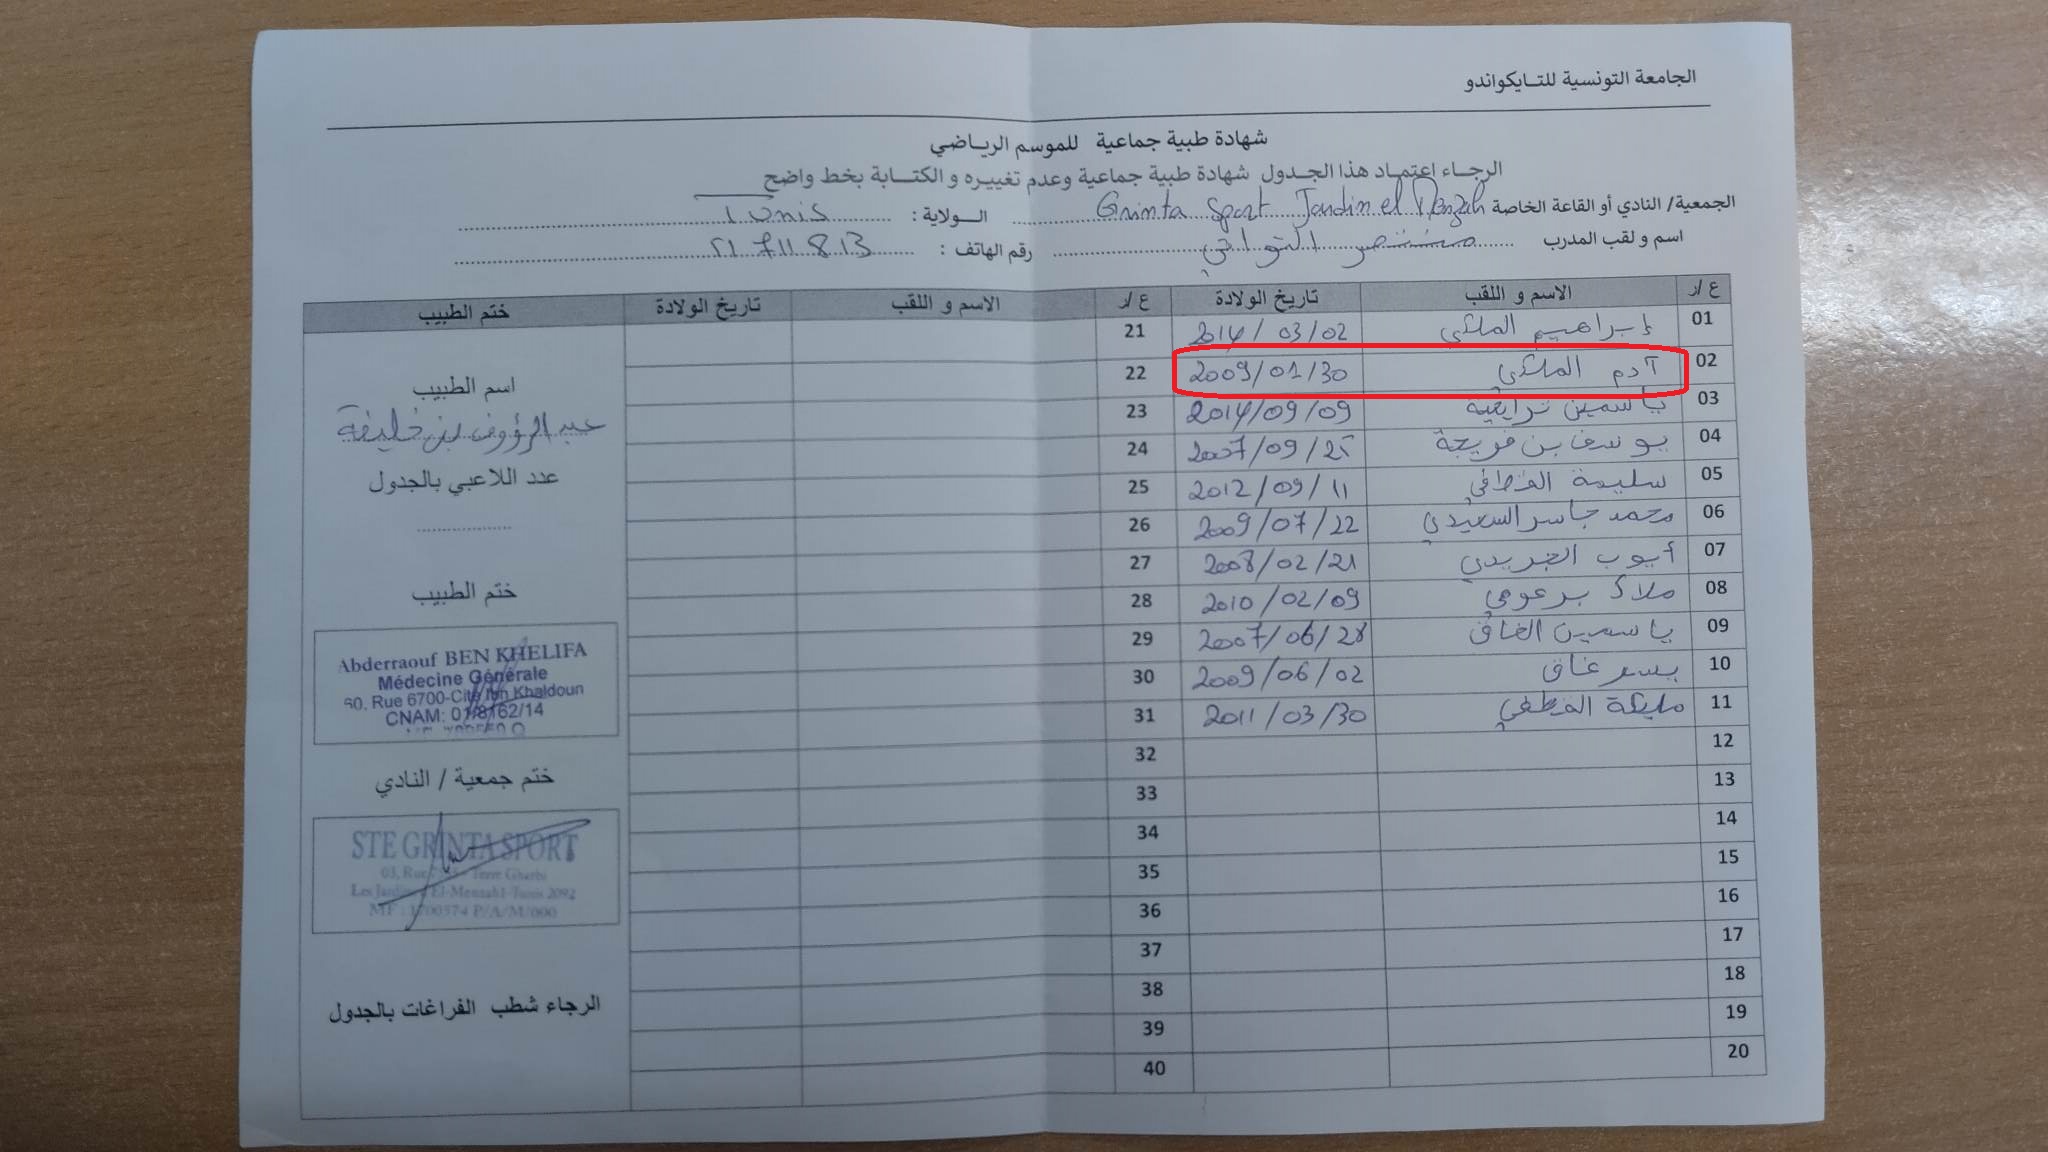 الجامعة التونسية للتايكواندو
شهادة طبية جماعية للموسم الرياضي
الرجاء اعتماد هذا الجدول شهادة طبية جماعية وعدم تغييره و الكتابة بخط واضح
الجمعية/ النادي أو القاعة الخاصة Grinta Sport Jardin el Menzah الولاية : Tunis
اسم و لقب المدرب منتصر التواتي رقم الهاتف : 21 711 813
ع/ر الاسم و اللقب تاريخ الولادة ع/ر الاسم و اللقب تاريخ الولادة ختم الطبيب
01 إبراهيم الملكي 2014/03/02 21
02 آدم الملكي 2009/01/30 22
03 ياسمين ترايعية 2014/09/09 23
04 يوسف بن فريجة 2007/09/25 24
05 سليمة القطافي 2012/09/11 25
06 محمد جاسر السعيدي 2009/07/22 26
07 أيوب الجريدي 2008/02/21 27
08 ملاك برعومي 2010/02/09 28
09 ياسمين الغاق 2007/06/28 29
10 يسر غاق 2009/06/02 30
11 مليكة القطفي 2011/03/30 31
12 32
13 33
14 34
15 35
16 36
17 37
18 38
19 39
20 40
اسم الطبيب
عبد الرؤوف بن خليفة
عدد اللاعبي بالجدول
ختم الطبيب
Abderraouf BEN KHELIFA
Médecine Générale
60, Rue 6700-Cité Ibn Khaldoun
CNAM: 01/8162/14
ختم جمعية / النادي
STE GRINTA SPORT
03, Rue Terre Gharbi
Les Jardins El-Menzah1-Tunis 2092
MF : 1700574 P/A/M/000
الرجاء شطب الفراغات بالجدول